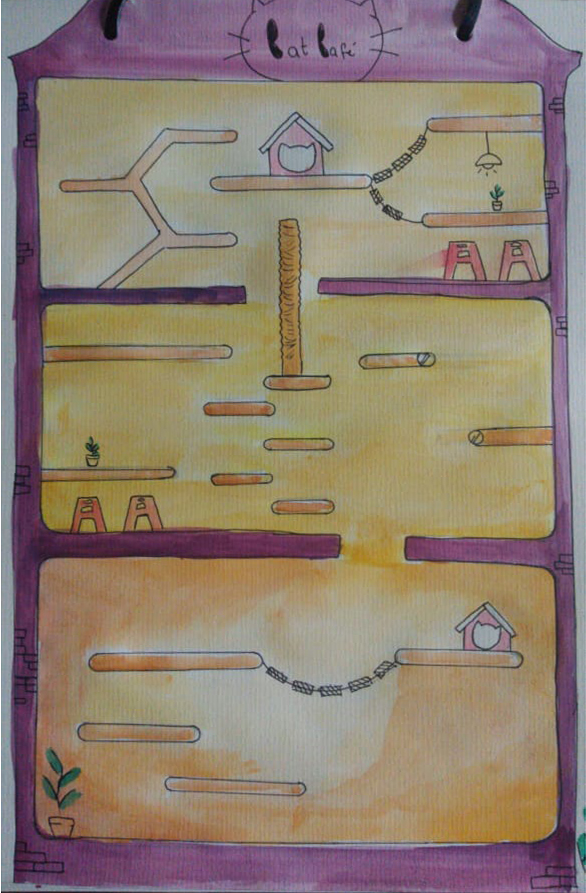 Cat Café